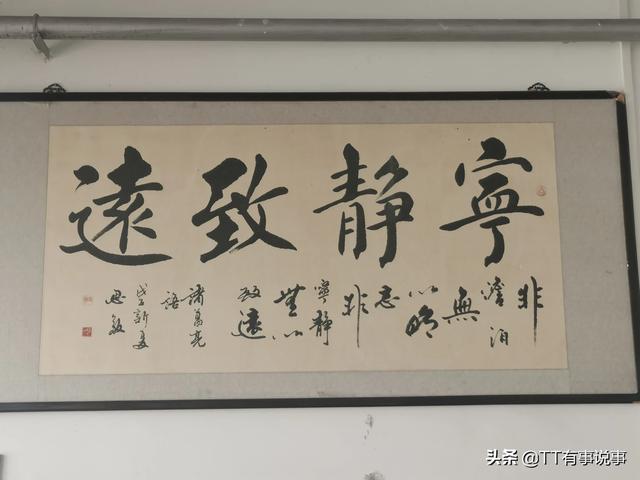 寧靜致遠
非
澹泊
無
以明
志
非
寧靜
無以
致遠
諸葛亮
語
新夏
头条 @TT有事说事